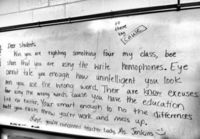 no
share
by
Dear students,
Win you are righting something four my class, bee
shore that you are using the write homophones. Eye
cannot tale you enough how unintelligent you look
win you use the wrong word. Their are know excuses
for using the wrong words cause you have the education
to know. Your smart enough to no the differences
butt you get and mess up.
Ms. Jenkins